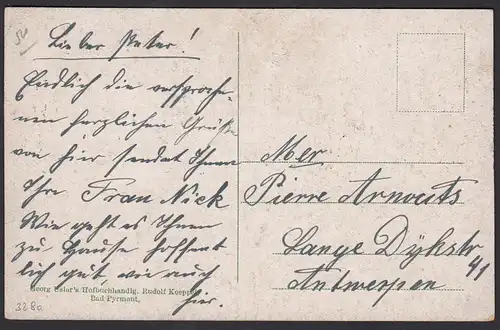 Lieber Peter!
Endlich die versproche-
nen herzlichen Grüße
von hier sendet Ihnen
Ihre Frau Nick
Wie geht es Ihnen
zu Hause hoffent
lich gut, wie auch
hier.
Georg Uslar's Hofbuchhandlg. Rudolf Koepp
Bad Pyrmont.
328a
Mer
Pierre Arnouts
Lange Dijkstr
41
Antwerpen